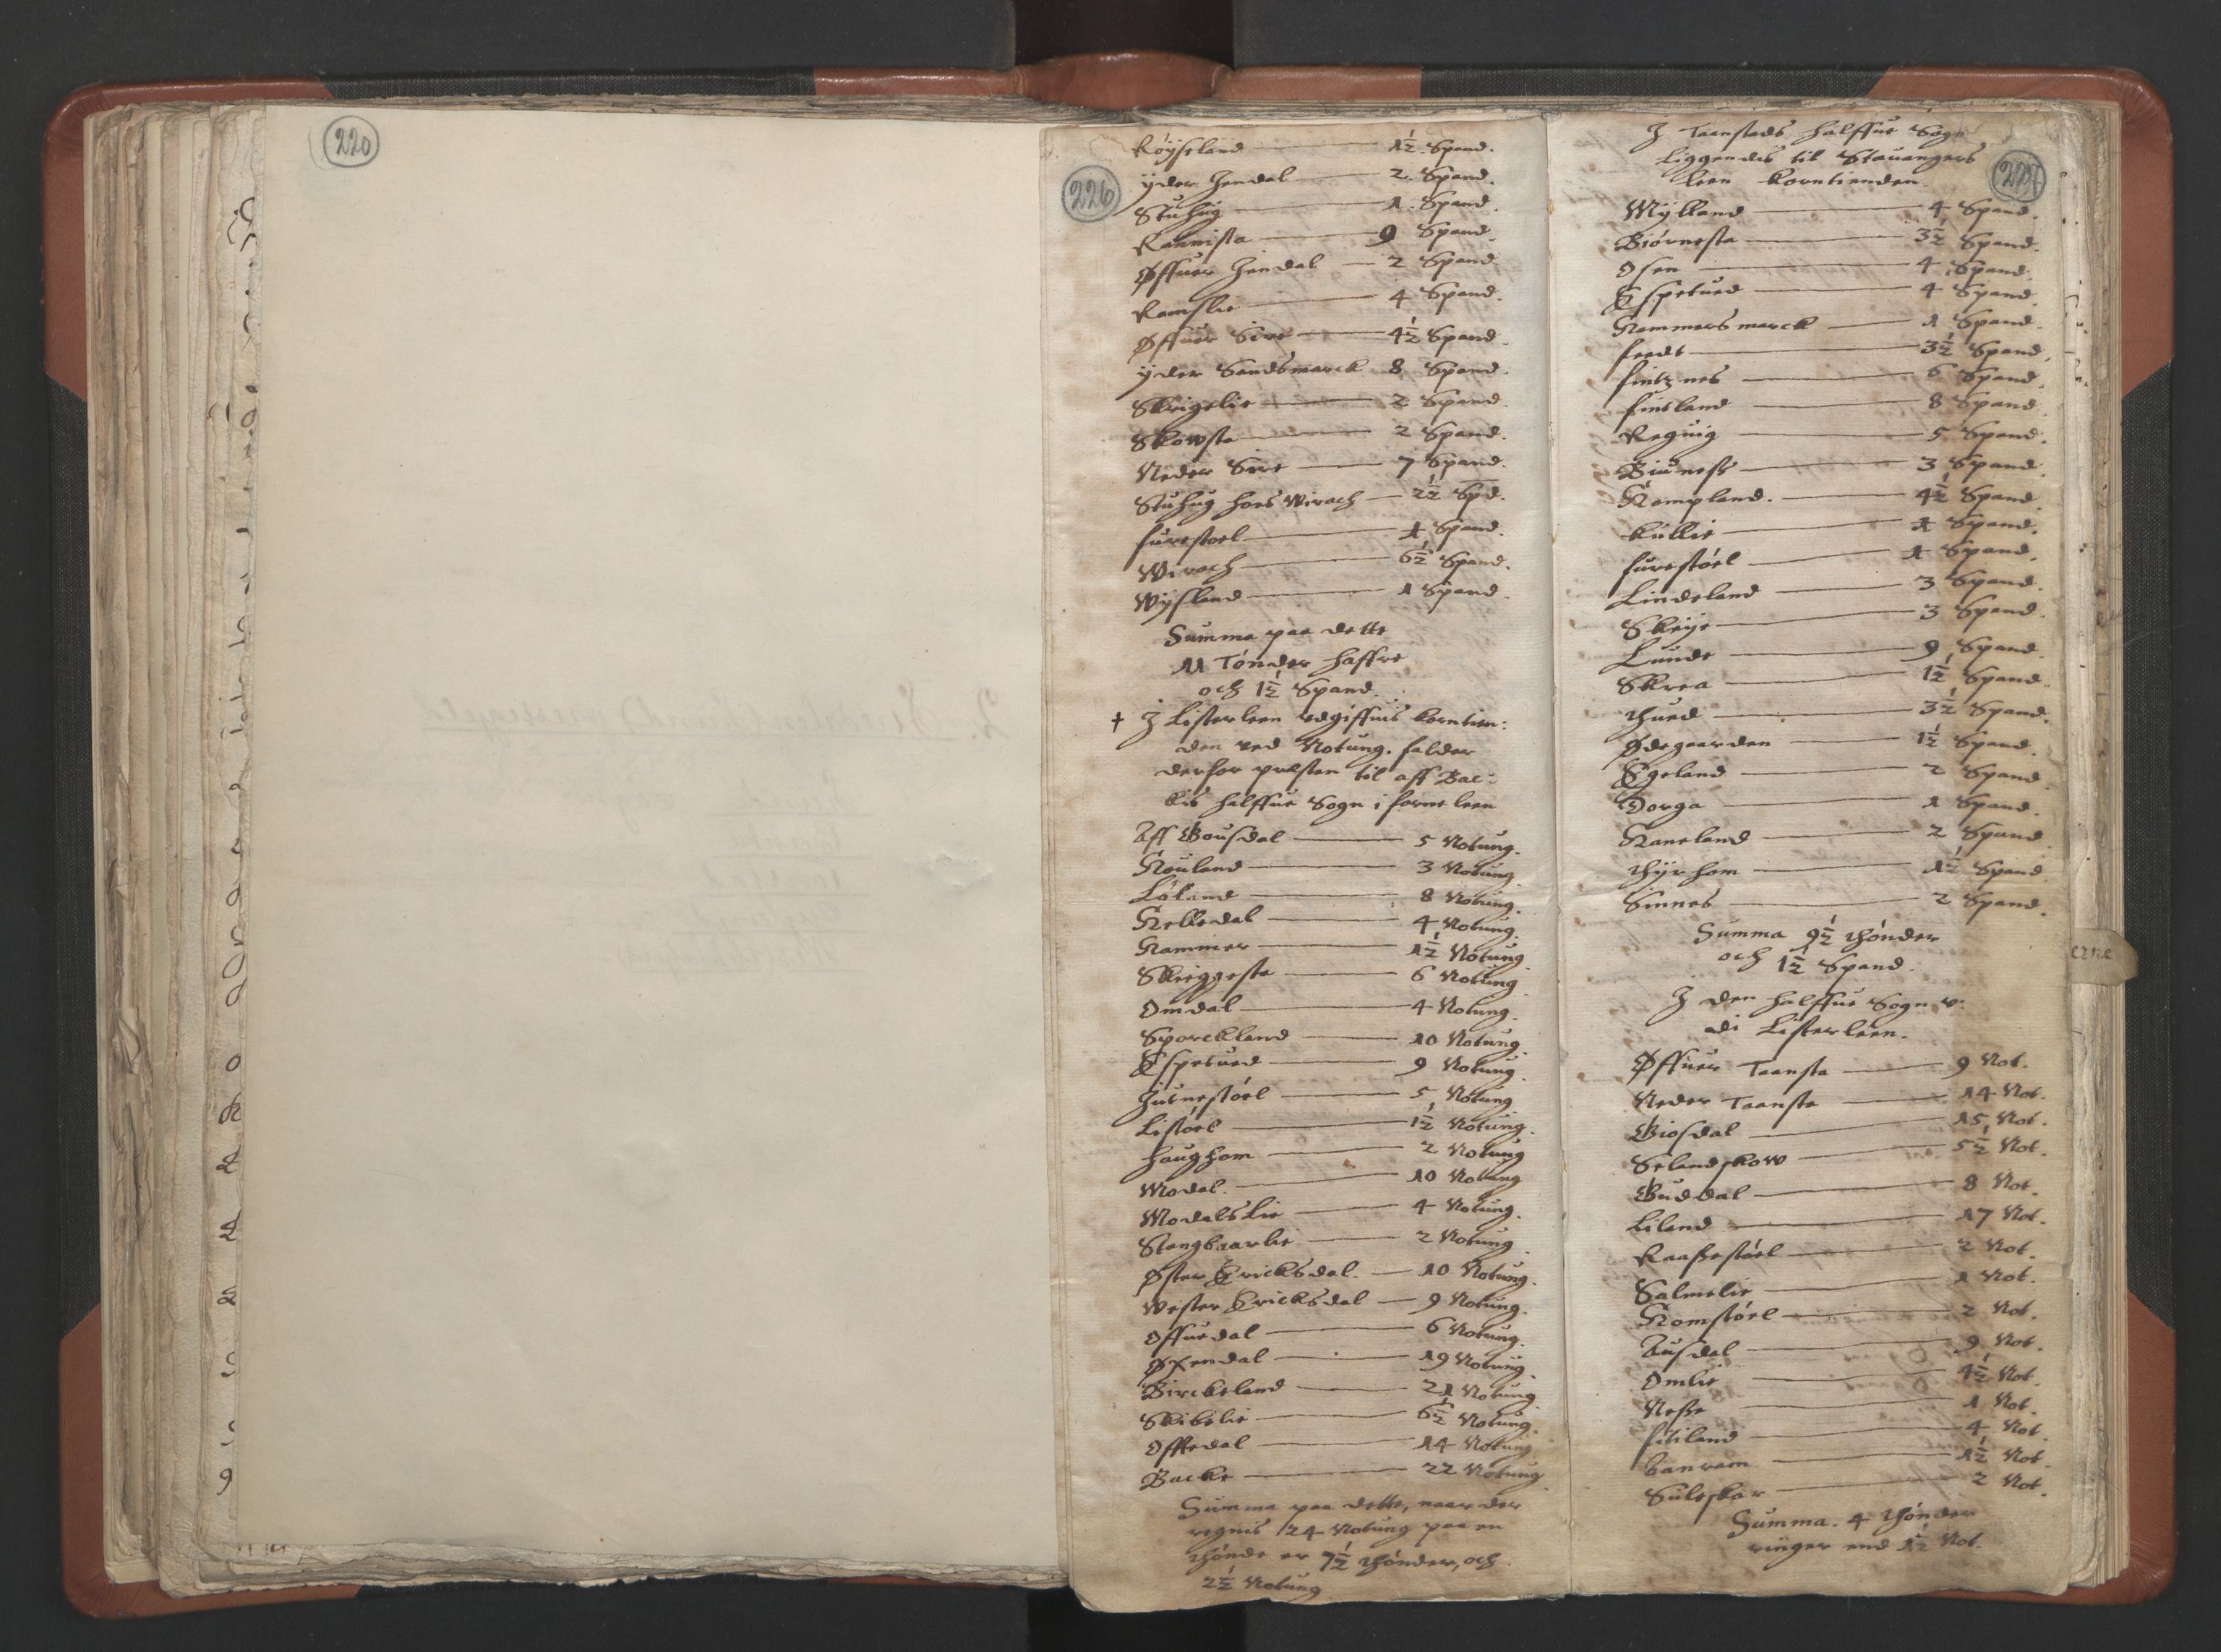 220
226
Røyseland 1½ Spand.
ÿder Hendal 2. Spand.
Stuhug 1. Spand.
Rannista 9 Spand.
Øffuer Hendal 2 Spand
Ramslie 4 Spand.
Øffuer Sire 4½ Spand.
ÿder Sandsmarck 8 Spand.
Skrigelie 2 Spand.
Skowsta 2 Spand.
Neder Sire 7 Spand.
Stuhug hoes Wirach 2½ Spd.
furestoel 1 Spand.
Wirach 6½ Spand.
Wÿsland 1 Spand.
Summa paa dette
11 Tønder haffre
och 1½ Spand.
† J Listerleen udgiffuis korntien:
den ved Notung. falder
derfor præsten til aff Bac:
kis halffue Sogn i forne leen
Aff Gousdal 5 Notung.
Houland 3 Notung.
Løland 8 Notung.
Helledal 4 Notung.
Hammer 1½ Notung
Skieggesta 6 Notung
Omdal 4 Notung.
Sporckland 10 Notung
Espetued 9 Notung.
Hurnestøel 5 Notung
Listøel 1½ Notung.
haughom 2 Notung
Modal. 10 Notung
Modals Lie 4 Notung.
Stangbaarlie 2 Notung
Øster Ericksdal. 10 Notung.
Wester Ericksdal 9 Notung.
Offuedal 6 Notung.
Øxendal 19 Notung
Birckeland 21 Notung
Skibelie 6½ Notung.
Offtedal 14 Notung
Backe 22 Notung
Summa paa dette, naar der
regnis 24 Notung paa en
thønde er 7½ thønder, och
2½ Notung
J Taanstads halffue Sogn
liggendis til Stauangers
leen korntienden.
227
Mÿlland 4 Spand.
Biørnesta 3½ Spand.
Osen 4 Spand.
Espetued 4 Spand.
Hammersmarck 1 Spand.
feedt 3½ Spand.
fintznes 6 Spand.
fintland 8 Spand
Reguig 5 Spand.
Biuness 3 Spand.
Hompland. 4½ Spand.
kúllie 1 Spand.
furestøel 1 Spand.
Lindeland 3 Spand.
Skeije 3 Spand.
Lunde 9 Spand.
Skrea 1½ Spand.
thued 3½ Spand.
Ødegaarden 1½ Spand.
Egeland 2 Spand.
Dorga 1 Spand.
Haneland 2 Spand.
thÿrhom 1½ Spand.
Sinnes 2 Spand.
Summa 9½ thønder
och 1½ Spand.
J den halffue Sogn v:
di Listerleen.
Øffuer Taansta 9 Not.
Neder Taansta 14 Not.
Giosdal 15 Not.
Selandskow 5½ Not.
Guddal 8 Not.
Liland 17 Not.
Raassestøel 2 Not.
Salmelie 1 Not.
Homstøel 2 Not.
Ausdal 9 Not.
Omlie 4½ Not.
Nesse 1 Not.
fitiland 4 Not.
banrom 1½ Not.
Suleskar 2 Not.
Summa. 4 thønder
ringer end 1½ Not.